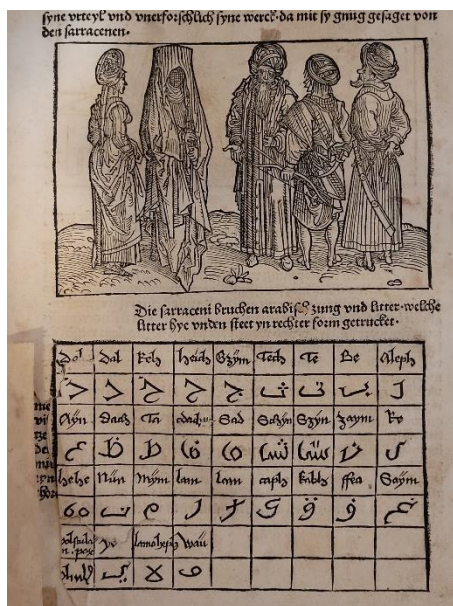 syne vrteyl vnd vnerforschlich syne werck. da mit sy gnug gesaget von
den sarracenen.
Die sarraceni bruchen arabisch zung vnd litter. welche
litter hye vnden steet yn rechter form getrucket.
Dol Dal Keh heich Gzÿm Tech Te Be Aleph
ذ د خ ح ج ث ت ب ا
Aÿn Dach Ta Sad Schÿn Szÿn Zaym Re
ع ظ ط ض ص ش س ز ر
hehe Nün Mÿm lam Lam caph Kabh ffea Gaym
ه ن م ل ك ق ف غ
ye lamoheph wau
ي لا و